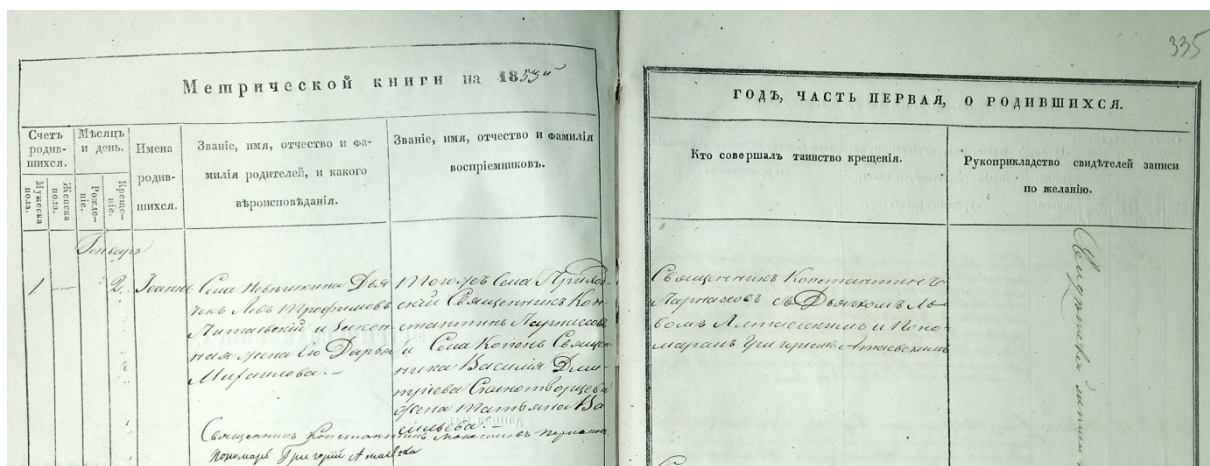 335
Метрической книги на 1853й
ГОДЪ, ЧАСТЬ ПЕРВАЯ, О РОДИВШИХСЯ.
Счетъ родив-
шихся.
Мужеска пола.
Женска пола.
Мѣсяцъ и день.
Рожде-
ніе.
Креще-
ніе.
Имена
родив-
шихся.
Званіе, имя, отчество и фа-
милія родителей, и какого
вѣроисповѣданія.
Званіе, имя, отчество и фамилія
воспріемниковъ.
Кто совершалъ таинство крещенія.
Рукоприкладство свидѣтелей записи
по желанію.
Генварь
1.
—
2.
Іоаннъ
Села Дья
чекъ Левъ Трофимовъ
и закон
ная жена Его Дарья
Михаилова. —
Того жъ Села Приход
скій Священникъ Кон
стантинъ Парнасовъ
и Села Копенъ Священ
ника Василія Дми
тріева
жена Татьяна Ва
сильева. —
Священникъ Константинъ
Парнасовъ съ Дьячкомъ Ль
вомъ и Поно
маремъ Григоріемъ
Священникъ Константинъ
Пономарь Григорій